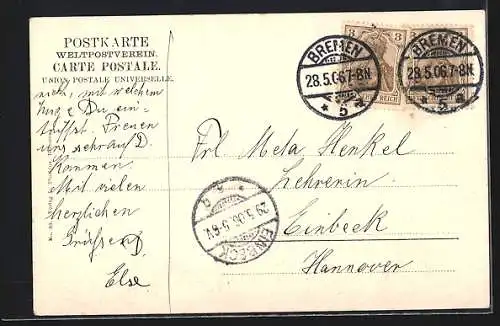 POSTKARTE
WELTPOSTVEREIN.
CARTE POSTALE.
UNION POSTALE UNIVERSELLE.
mit welchem
Du ein-
triffst. Freuen
uns sehr auf D.
Kommen.
Mit vielen
herzlichen
Grüßen
Else
BREMEN
28.5.06 7-8N
* 5
BREMEN
28.5.06 7-8N
3 3
REICH
Frl. Meta Henkel
Lehrerin
Einbeck
Hannover
29.5.06. 5-6V.
EINBECK